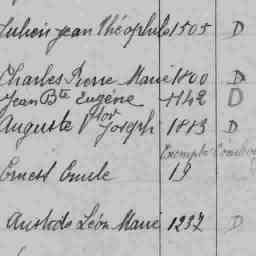 Julien Jean Théophile 1505 D
Charles Pierre Marie 1800 D
Jean Bte Eugène 1142 D
Auguste Vtor Joseph 1813 D
Exempté
Ernest Emile 19
Aristide Léon Marie 1237 D